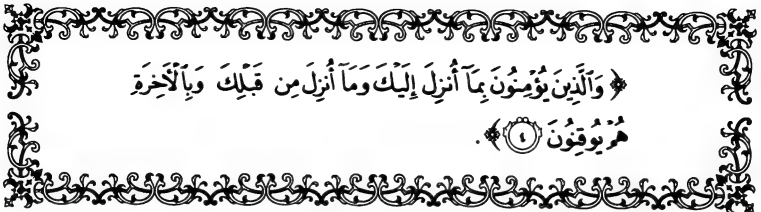 ﴿ وَٱلَّذِينَ يُؤۡمِنُونَ بِمَآ أُنزِلَ إِلَيۡكَ وَمَآ أُنزِلَ مِن قَبۡلِكَ وَبِٱلۡأٓخِرَةِ
هُمۡ يُوقِنُونَ ٤ ﴾ .